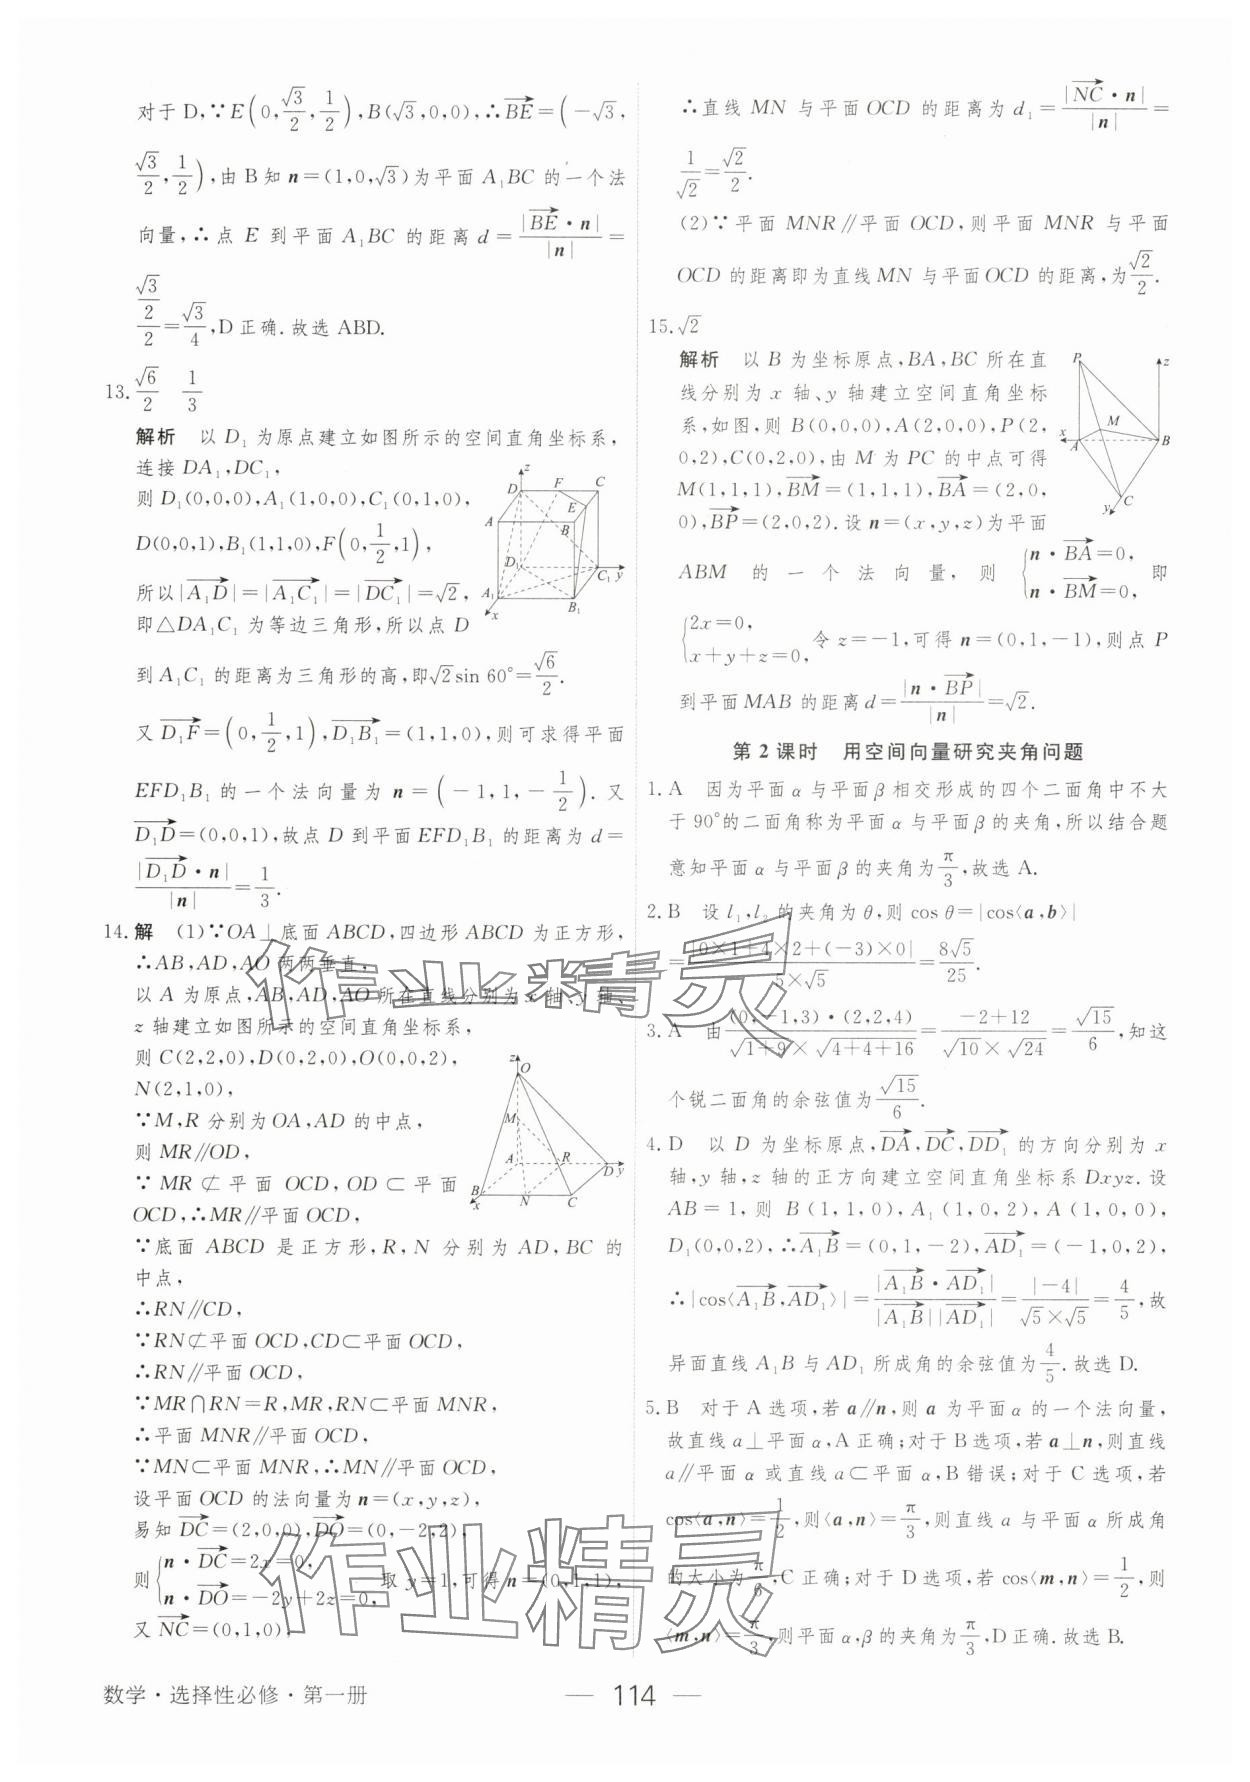 对于 D,∵E(0,√3/2,1/2),B(√3,0,0),∴BE→=(-√3,
√3/2,1/2),由 B 知 n=(1,0,√3)为平面 A₁BC 的一个法
向量,∴点 E 到平面 A₁BC 的距离 d=|BE→·n|/|n|=
(√3/2)/2=√3/4,D 正确.故选 ABD.
13.√6/2  1/3
解析 以 D₁ 为原点建立如图所示的空间直角坐标系,
连接 DA₁,DC₁,
则 D₁(0,0,0),A₁(1,0,0),C₁(0,1,0),
D(0,0,1),B₁(1,1,0),F(0,1/2,1),
所以|A₁D→|=|A₁C₁→|=|DC₁→|=√2,
即△DA₁C₁ 为等边三角形,所以点 D
z
D F C
E
A B
D₁ C₁ y
A₁ B₁
x
到 A₁C₁ 的距离为三角形的高,即√2sin 60°=√6/2.
又 D₁F→=(0,1/2,1),D₁B₁→=(1,1,0),则可求得平面
EFD₁B₁ 的一个法向量为 n=(-1,1,-1/2). 又
D₁D→=(0,0,1),故点 D 到平面 EFD₁B₁ 的距离为 d=
|D₁D→·n|/|n|=1/3.
14.解 (1)∵OA⊥底面 ABCD,四边形 ABCD 为正方形,
∴AB,AD,AO 两两垂直,
以 A 为原点,AB,AD,AO 所在直线分别为 x 轴、y 轴、
z 轴建立如图所示的空间直角坐标系,
则 C(2,2,0),D(0,2,0),O(0,0,2),
N(2,1,0),
∵M,R 分别为 OA,AD 的中点,
则 MR∥OD,
∵MR⊄平面 OCD,OD⊂平面
OCD,∴MR∥平面 OCD,
z
O
M
A R D y
B N C
x
∵底面 ABCD 是正方形,R,N 分别为 AD,BC 的
中点,
∴RN∥CD,
∵RN⊄平面 OCD,CD⊂平面 OCD,
∴RN∥平面 OCD,
∵MR∩RN=R,MR,RN⊂平面 MNR,
∴平面 MNR∥平面 OCD,
∵MN⊂平面 MNR,∴MN∥平面 OCD,
设平面 OCD 的法向量为 n=(x,y,z),
易知 DC→=(2,0,0),DO→=(0,-2,2),
则{n·DC→=2x=0,
n·DO→=-2y+2z=0, 取 y=1,可得 n=(0,1,1),
又 NC→=(0,1,0),
∴直线 MN 与平面 OCD 的距离为 d₁=|NC→·n|/|n|=
1/√2=√2/2.
(2)∵平面 MNR∥平面 OCD,则平面 MNR 与平面
OCD 的距离即为直线 MN 与平面 OCD 的距离,为√2/2.
15.√2
解析 以 B 为坐标原点,BA,BC 所在直
线分别为 x 轴、y 轴建立空间直角坐标
系,如图,则 B(0,0,0),A(2,0,0),P(2,
0,2),C(0,2,0),由 M 为 PC 的中点可得
M(1,1,1),BM→=(1,1,1),BA→=(2,0,
0),BP→=(2,0,2).设 n=(x,y,z)为平面
P z
M
x A B
C
y
ABM 的一个法向量,则{n·BA→=0,
n·BM→=0, 即
{2x=0,
x+y+z=0, 令 z=-1,可得 n=(0,1,-1),则点 P
到平面 MAB 的距离 d=|n·BP→|/|n|=√2.
第 2 课时 用空间向量研究夹角问题
1.A 因为平面 α 与平面 β 相交形成的四个二面角中不大
于 90°的二面角称为平面 α 与平面 β 的夹角,所以结合题
意知平面 α 与平面 β 的夹角为π/3,故选 A.
2.B 设 l₁,l₂ 的夹角为 θ,则 cos θ=|cos⟨a,b⟩|
=|0×1+4×2+(-3)×0|/(5×√5)=8√5/25.
3.A 由(0,-1,3)·(2,2,4)/(√1+9×√4+4+16)=(-2+12)/(√10×√24)=√15/6,知这
个锐二面角的余弦值为√15/6.
4.D 以 D 为坐标原点,DA→,DC→,DD₁→ 的方向分别为 x
轴,y 轴,z 轴的正方向建立空间直角坐标系 Dxyz.设
AB=1,则 B(1,1,0),A₁(1,0,2),A(1,0,0),
D₁(0,0,2),∴A₁B→=(0,1,-2),AD₁→=(-1,0,2),
∴|cos⟨A₁B→,AD₁→⟩|=|A₁B→·AD₁→|/(|A₁B→||AD₁→|)=|-4|/(√5×√5)=4/5,故
异面直线 A₁B 与 AD₁ 所成角的余弦值为4/5.故选 D.
5.B 对于 A 选项,若 a∥n,则 a 为平面 α 的一个法向量,
故直线 a⊥平面 α,A 正确;对于 B 选项,若 a⊥n,则直线
a∥平面 α 或直线 a⊂平面 α,B 错误;对于 C 选项,若
cos⟨a,n⟩=1/2,则⟨a,n⟩=π/3,则直线 a 与平面 α 所成角
的大小为π/6,C 正确;对于 D 选项,若 cos⟨m,n⟩=1/2,则
⟨m,n⟩=π/3,则平面 α,β 的夹角为π/3,D 正确.故选 B.
作业精灵
作业精灵
数学·选择性必修·第一册
— 114 —